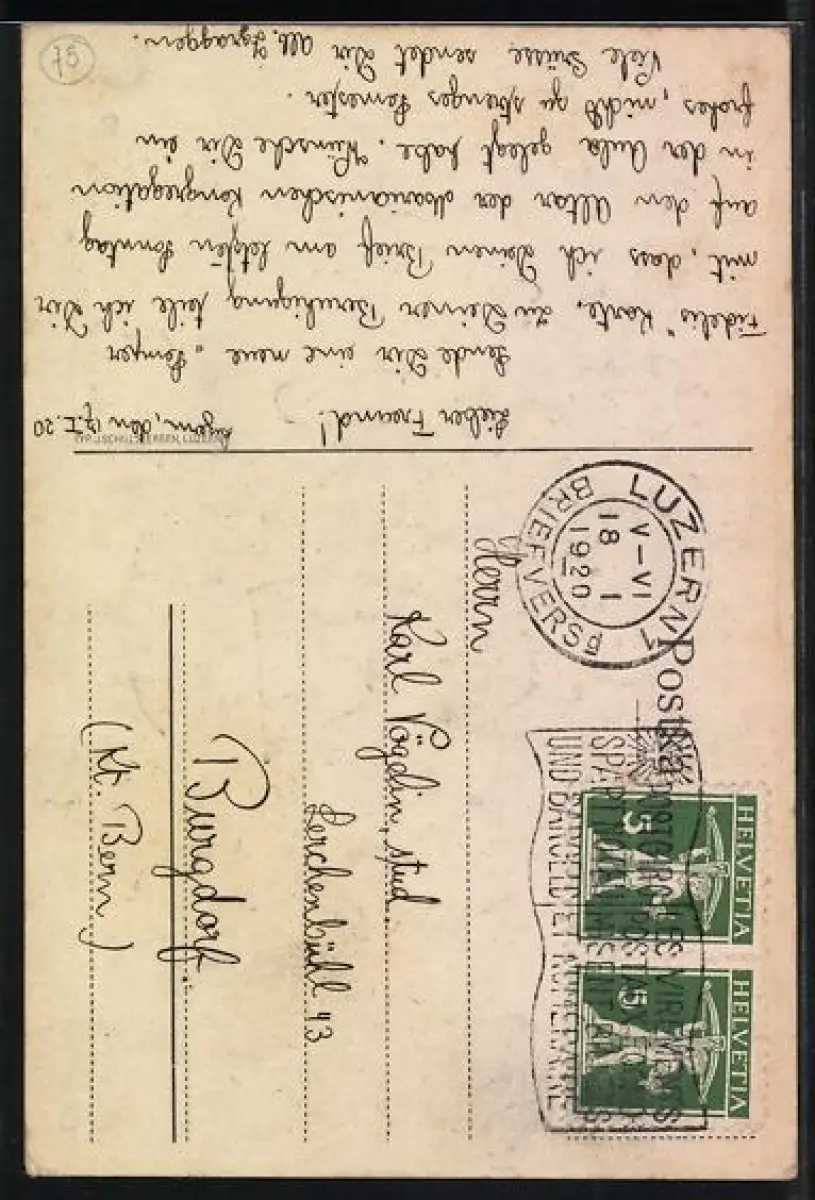 Luzern, den 17. I. 20
Lieber Freund!
Sende Dir eine neue „Semper
Fidelis" Karte. Zu Deiner Beruhigung teile ich Dir
mit, dass ich Deinen Brief am letzten Sonntag
auf den Altar der Marianischen Kongregation
in der Aula gelegt habe. Wünsche Dir ein
frohes, nicht zu strenges Semester.
Viele Grüsse sendet Dir Alb. Zgraggen.
75
Postka
LUZERN 1
V–VI
18 I
1920
BRIEFVERSD
HELVETIA
5
HELVETIA
5
POSTCHÈQUES VIREMENTS
UND BARGELD
Herrn
Karl Vögelin, stud.
Lerchenbühl 43
Burgdorf.
(Kt. Bern)